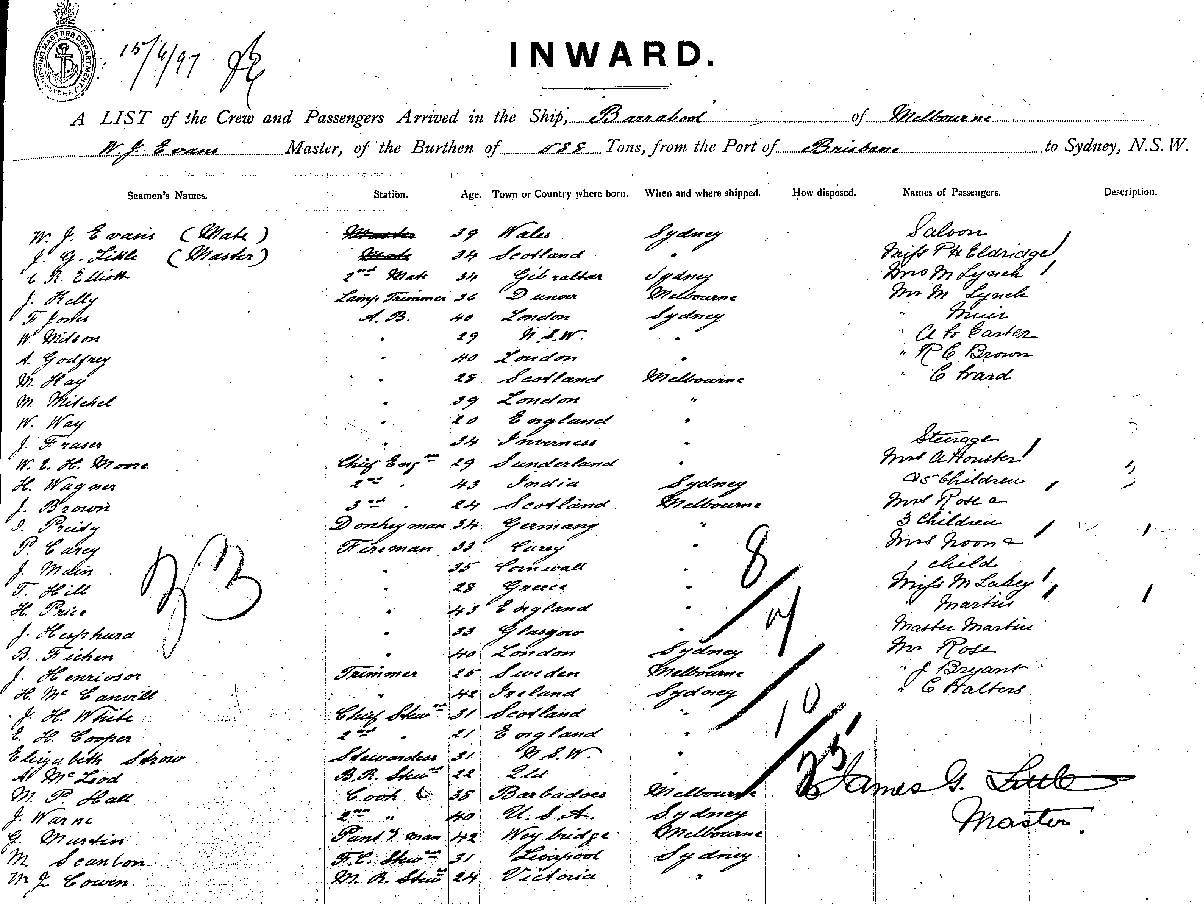 15/6/97
INWARD.
A LIST of the Crew and Passengers Arrived in the Ship, Barrabool of Melbourne
W. J. Evans Master, of the Burthen of 588 Tons, from the Port of Brisbane to Sydney, N.S.W.
Seamen's Names. Station. Age. Town or Country where born. When and where shipped. How disposed. Names of Passengers. Description.
W. J. Evans (Mate) Master 39 Wales Sydney Saloon
J. G. Little (Master) Mate 34 Scotland " Miss P H Eldridge
R. Elliott 2nd Mate 34 Gibraltar Sydney Mrs M Lynch
J. Kelly Lamp Trimmer 36 Melbourne Mr M Lynch
F. Jones A.B. 40 London Sydney " Muir
W. Wilson " 29 N.S.W. " " Carter
A. Godfrey " 40 London " " R C Brown
M. Hay " 28 Scotland Melbourne " C Ward
M. Mitchel " 39 London "
W. Way " 20 England "
J. Fraser " 34 Inverness " Steerage
W. E. H. Moore Chief Engnr 29 Sunderland " Mrs A
H. Wagner 2nd " 43 India Sydney & 5 Children
J. Brown 3rd " 24 Scotland Melbourne Mrs Rose &
Donkeyman 34 Germany " 3 Children
P. Carey Fireman 33 " Mrs Noon &
J. Main " 35 Cornwall " child
T. Hill " 28 Greece " Miss M Lahey
H. Price " 43 England " " Martin
J. " 33 Glasgow " Master Martin
B. Fichen " 40 London Sydney Mr Rose
J. Henrioson Trimmer 25 Sweden Melbourne " J Bryant
H. Mc " 42 Ireland Sydney " C Walters
J. H. White Chief Stewd 31 Scotland "
E. H. Cooper 2nd " 21 England "
Elizabeth Strow Stewardess 31 N.S.W. "
A. McLeod B.R. Stewd 22 "
M. P. Hall Cook 35 Barbadoes Melbourne
J. Warne 2nd " 40 U.S.A. Sydney
G. Martin Pantryman 42 Weybridge Melbourne
M. Scanlon F.C. Stewd 31 Liverpool Sydney
M. J. Cowen M. R. Stewd 24 Victoria "
33
8
7
10
25
James G. Little
Master.